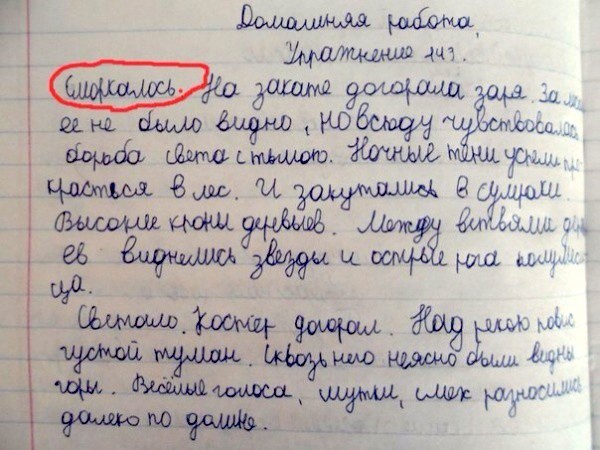 Домашняя работа.
Упражнение 143.
Сморкалось. На закате догорала заря. За
ее не было видно, но всюду чувствовалась
борьба света с тьмою. Ночные тени успели про
красться в лес. И закутались в сумраки.
Высокие кроны деревьев. Между ветвями дерь
ев виднелись звезды и острые рога полумеся
ца.
Светало. Костер догорал. Над рекою повис
густой туман. Сквозь него неясно были видны
горы. Весёлые голоса, шутки, смех разносились
далеко по долине.